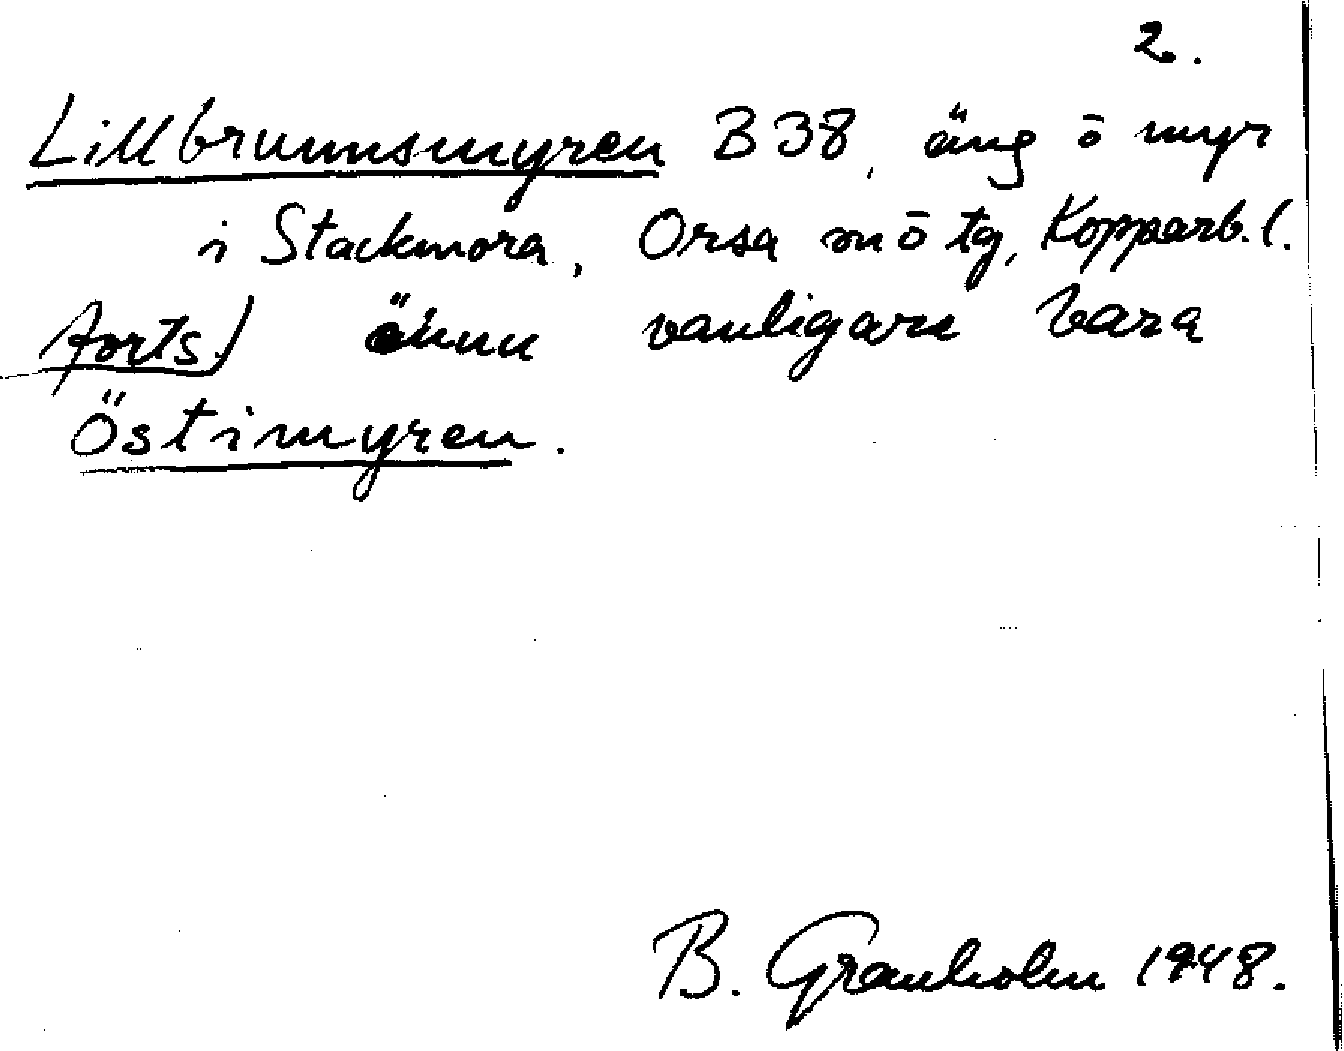 2.
Lillbrunnsmyren B 38, äng o myr
i Stackmora, Orsa sn o tg, Kopparb. l.
Forts.) ännu vanligare bara
Östimyren.
B. Granholm 1948.